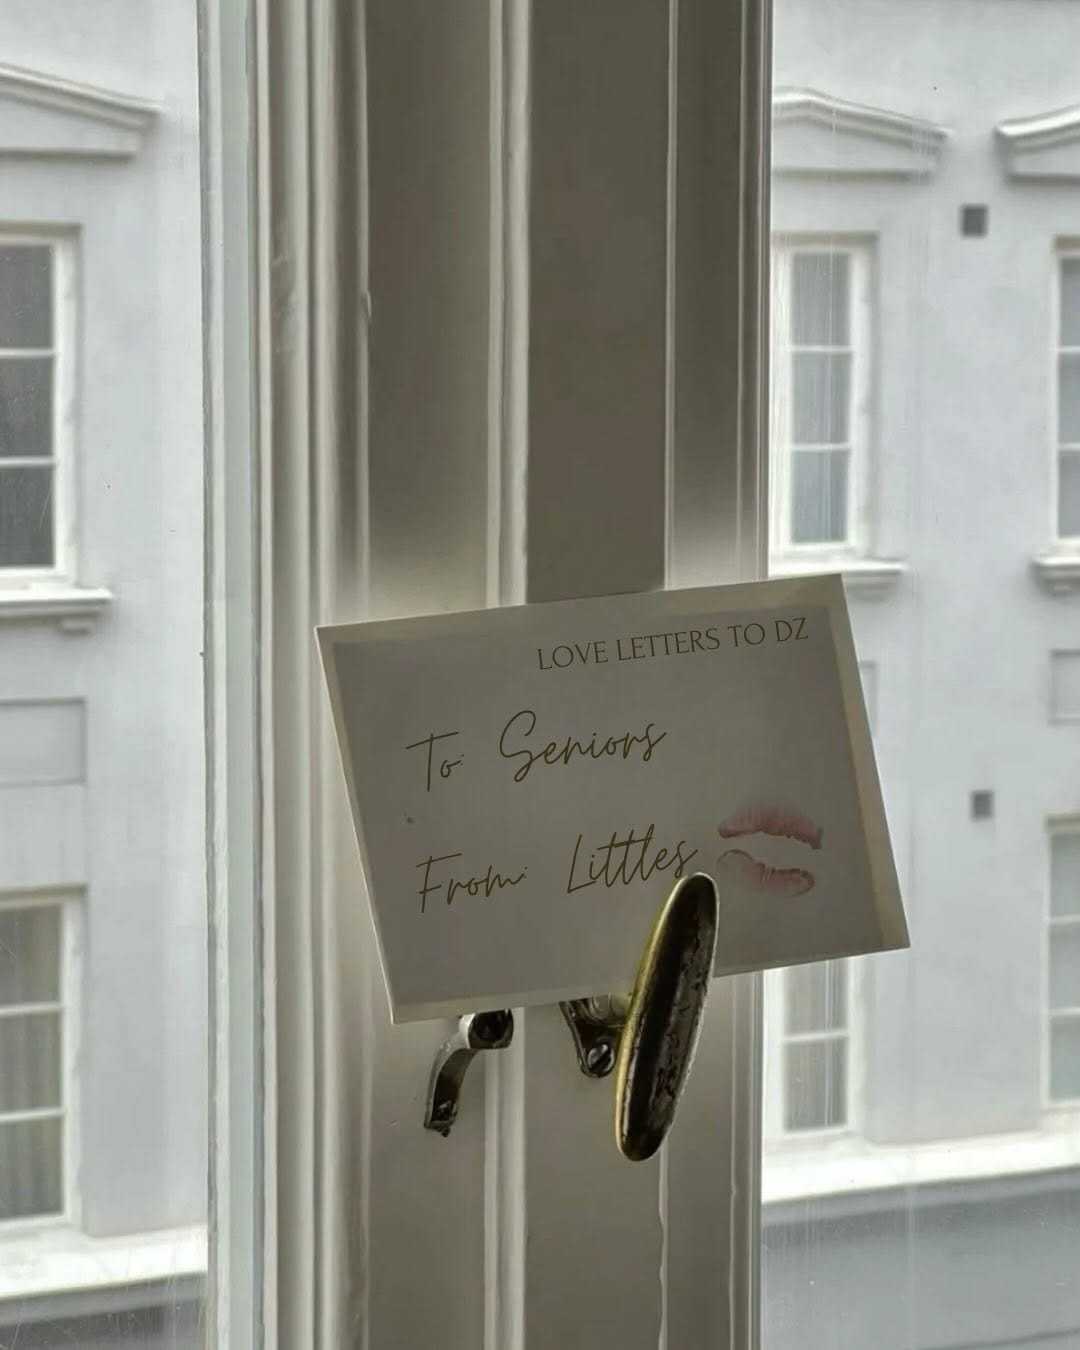 LOVE LETTERS TO DZ
To: Seniors
From: Littles